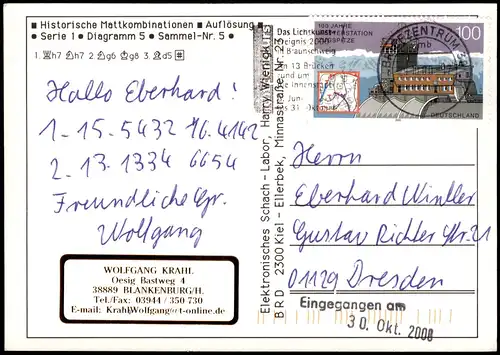 ■ Historische Mattkombinationen ■ Auflösung ■
■ Serie 1 ■ Diagramm 5 ■ Sammel-Nr. 5 ■
1. ♕h7 ♘h7 2. ♘g6 ♔g8 3. ♗d5 #
Hallo Eberhard!
1-15-5432 16.4142
2. 13.1334 6654
Freundliche Gr.
Wolfgang
WOLFGANG KRAHL
Oesig Bastweg 4
38889 BLANKENBURG/H.
Tel./Fax: 03944 / 350 730
E-mail: KrahlWolfgang@t-online.de
Elektronisches Schach-Labor, Harry Wienigk
BRD 2300 Kiel - Ellerbek, Minnastraße Nr. 23
Das Lichtkunst-
ereignis 2000
in Braunschweig
an 13 Brücken
rund um
die Innenstadt
Juni
bis 31. Oktober
100 JAHRE
WETTERSTATION
ZUGSPITZE
100
DEUTSCHLAND
BRIEFZENTRUM
Herrn
Eberhard Winkler
Gustav Richter Str. 21
01129 Dresden
Eingegangen am
30. Okt. 2000